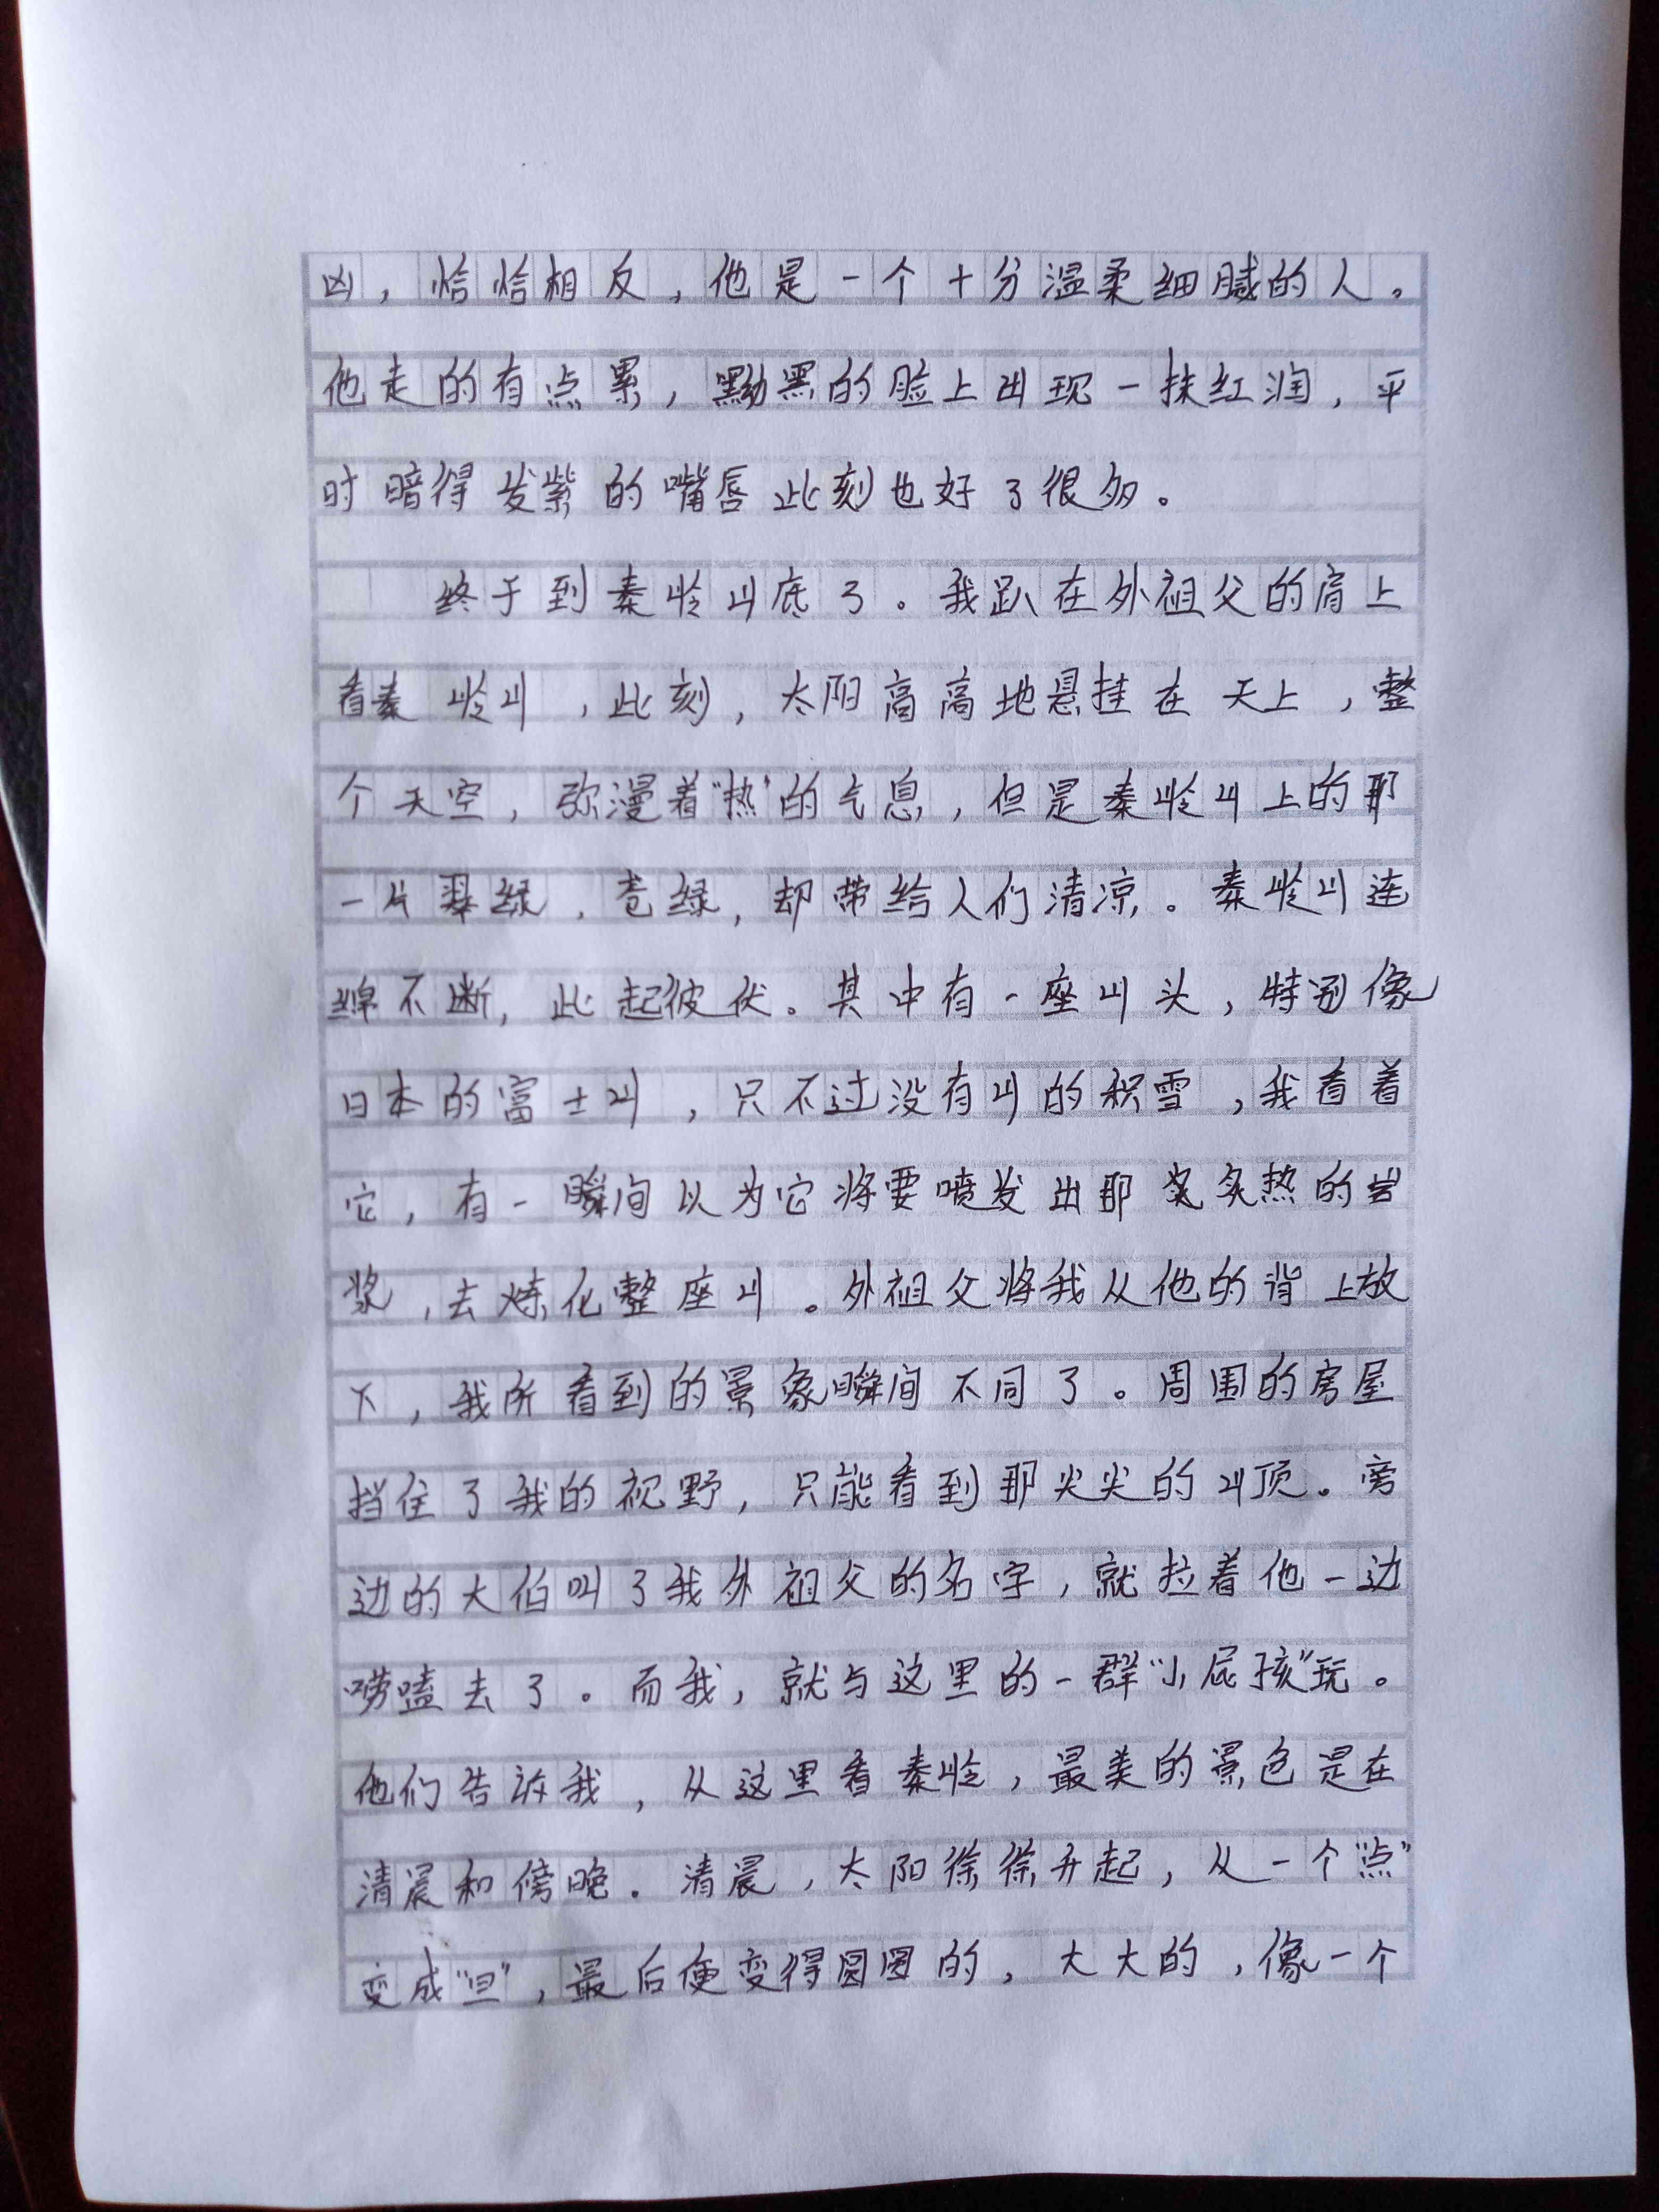 凶，恰恰相反，他是一个十分温柔细腻的人。
他走的有点累，黝黑的脸上出现一抹红润，平
时暗得发紫的嘴唇此刻也好了很多。
终于到秦岭山底了。我趴在外祖父的肩上
看秦岭山，此刻，太阳高高地悬挂在天上，整
个天空，弥漫着“热”的气息，但是秦岭山上的那
一片翠绿，苍绿，却带给人们清凉。秦岭山连
绵不断，此起彼伏。其中有一座山头，特别像
日本的富士山，只不过没有山的积雪，我看着
它，有一瞬间以为它将要喷发出那炙炙热的岩
浆，去炼化整座山。外祖父将我从他的背上放
下，我所看到的景象瞬间不同了。周围的房屋
挡住了我的视野，只能看到那尖尖的山顶。旁
边的大伯叫了我外祖父的名字，就拉着他一边
唠嗑去了。而我，就与这里的一群“小屁孩”玩。
他们告诉我，从这里看秦岭，最美的景色是在
清晨和傍晚。清晨，太阳徐徐升起，从一个“点”
变成“旦”，最后便变得圆圆的，大大的，像一个